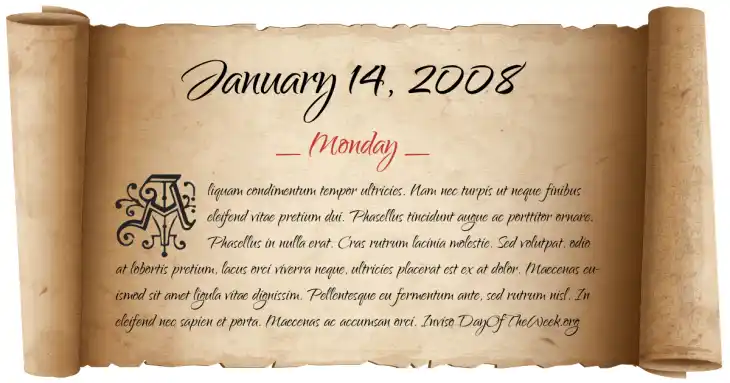 January 14, 2008
_ Monday _
Aliquam condimentum tempor ultricies. Nam nec turpis ut neque finibus
eleifend vitae pretium dui. Phasellus tincidunt augue ac porttitor ornare.
Phasellus in nulla erat. Cras rutrum lacinia molestie. Sed volutpat, odio
at lobortis pretium, lacus orci viverra neque, ultricies placerat est ex at dolor. Maecenas eu-
ismod sit amet ligula vitae dignissim. Pellentesque eu fermentum ante, sed rutrum nisl. In
eleifend nec sapien et porta. Maecenas ac accumsan orci. Inviso DayOfTheWeek.org